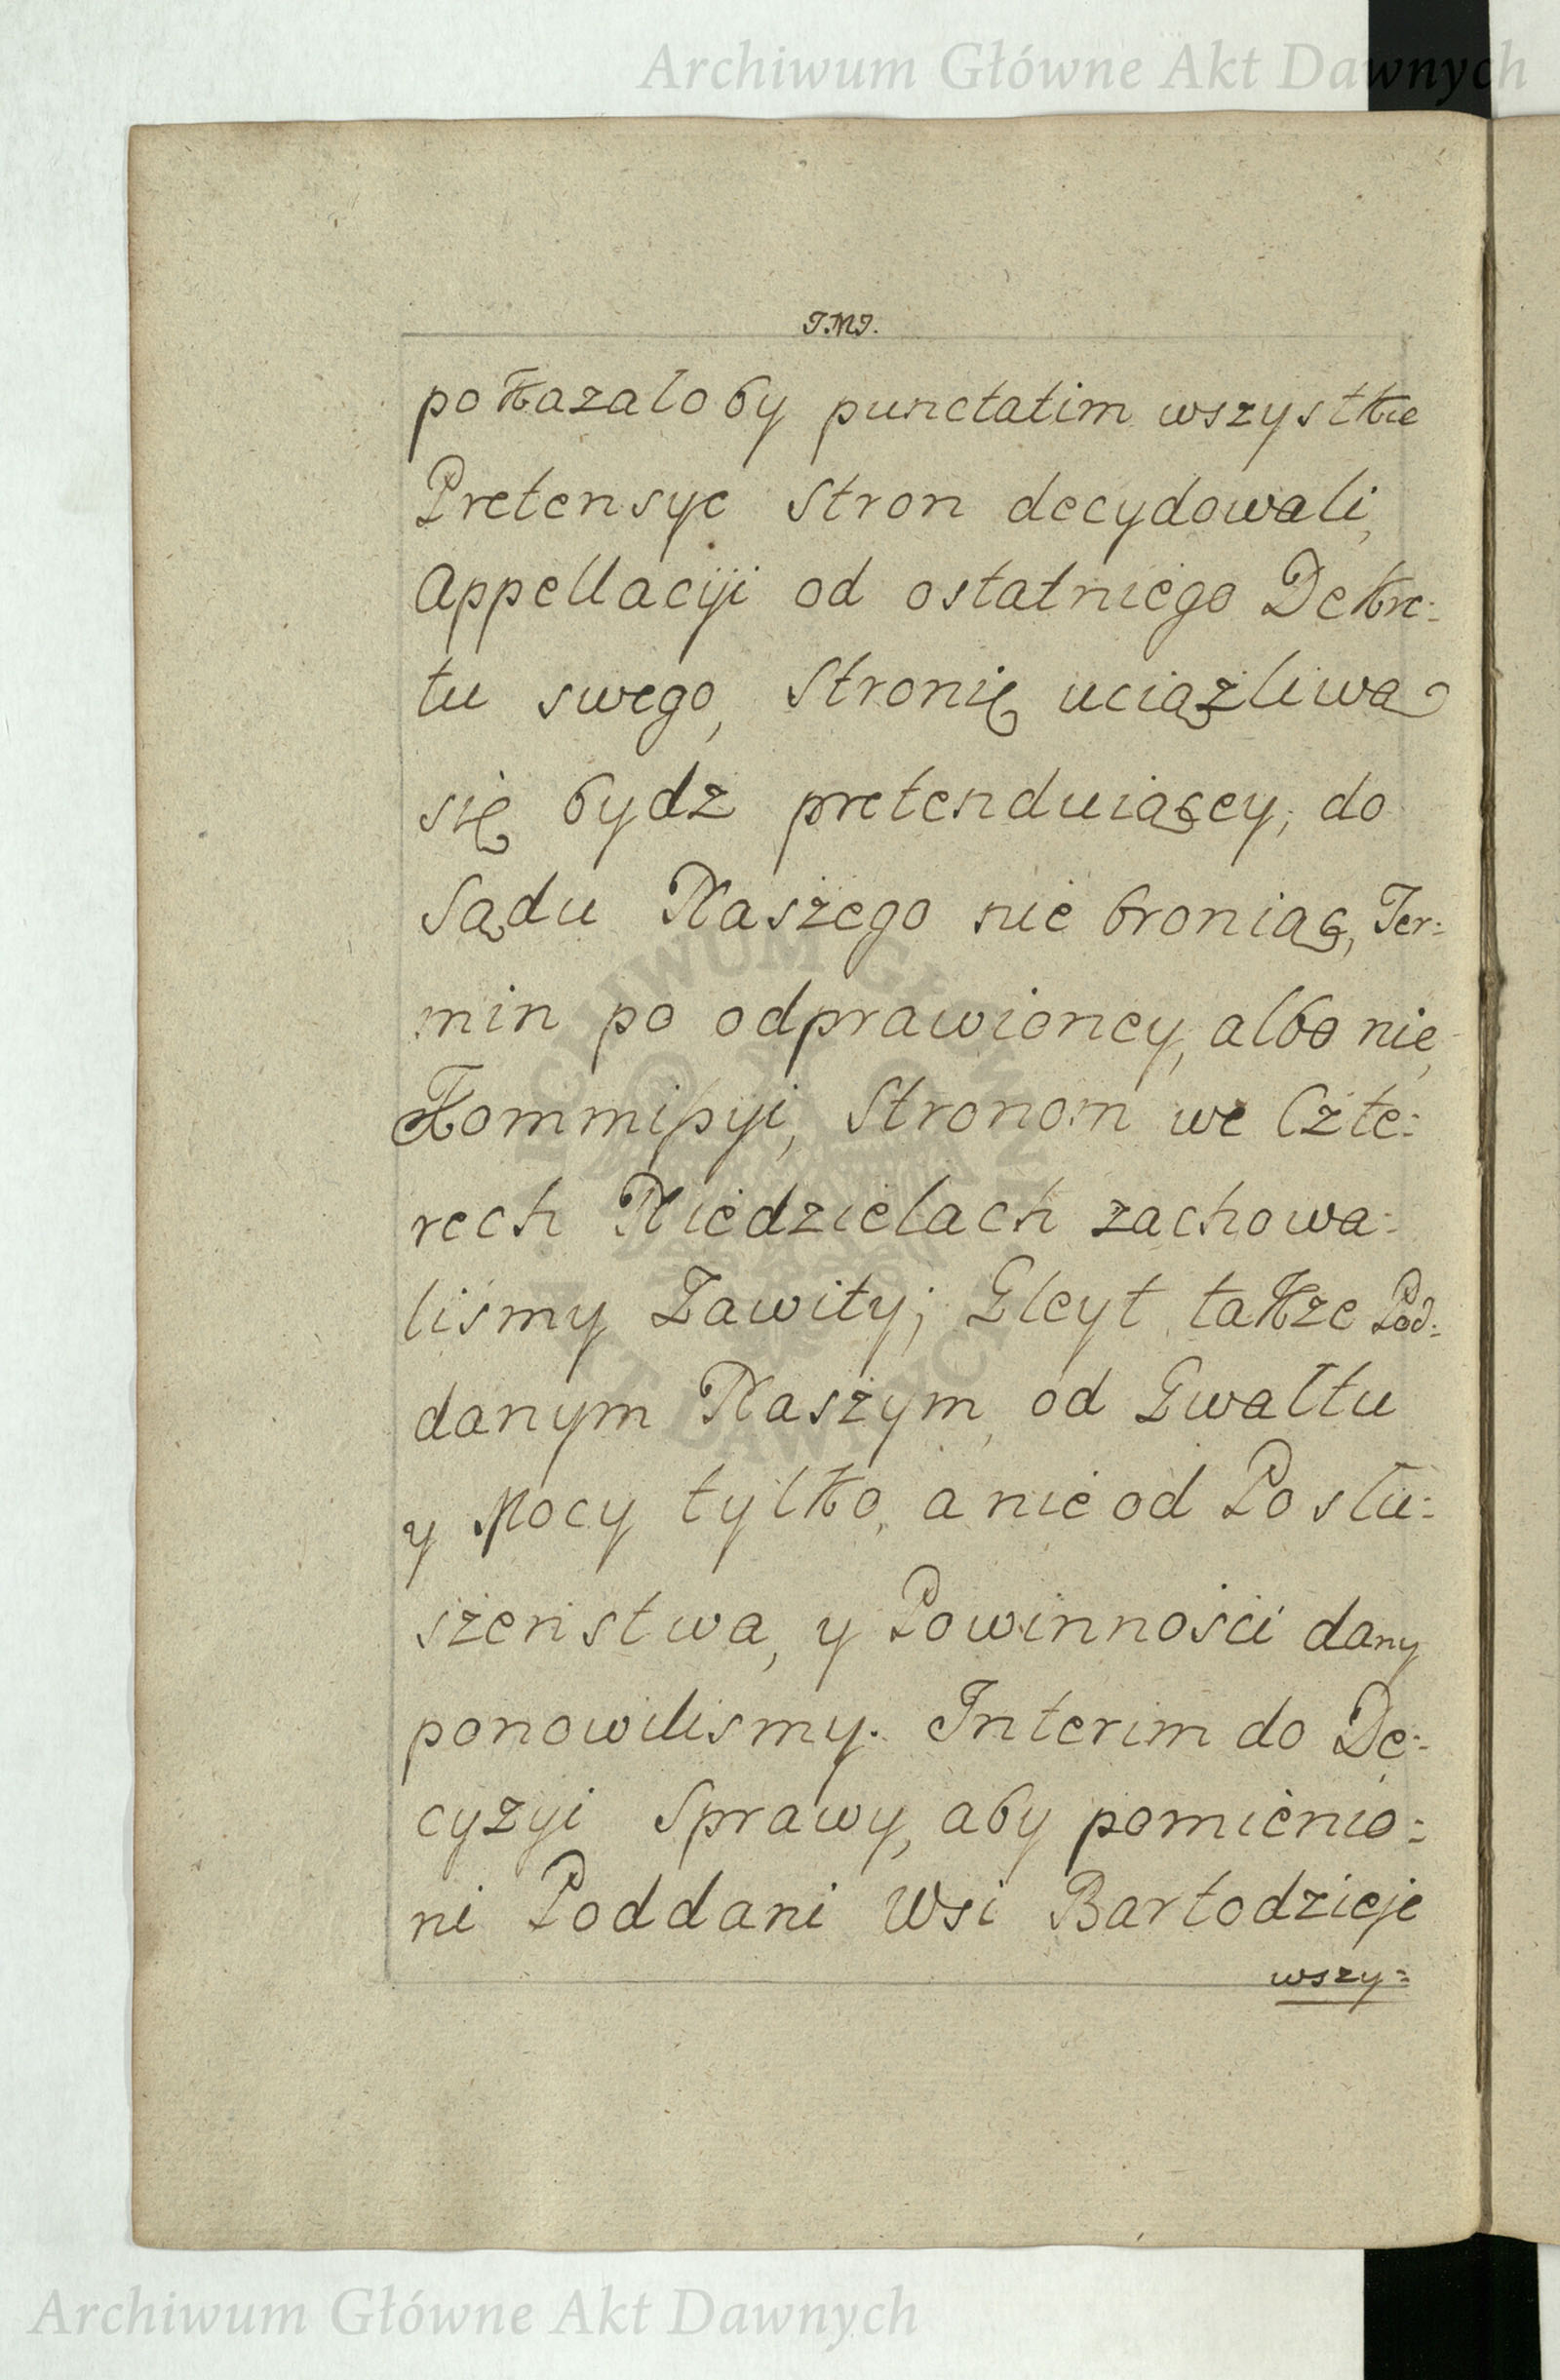 Archiwum Główne Akt Dawnych
J.M.J.
pokazałoby punctatim wszystkie
Pretensye Stron decydowali,
Appellacyji od ostatniego Dekre:
tu swego, Stronię uciążliwą
się bydz pretenduiącey, do
Sądu Naszego nie broniąc, Ter:
min po odprawioney, albo nie,
Kommissyi, Stronom we Czte:
rech Niedzielach zachowa:
liśmy Zawity; Gleyt także Pod:
danym Naszym, od Gwałtu
y Mocy tylko, a nie od Posłu:
szeństwa, y Powinności dany
ponowilismy. Interim do De:
cyzyi Sprawy, aby pomienio:
ni Poddani Wsi Bartodzieje
wszy:
ARCHIWUM GŁÓWNE
AKT DAWNYCH
Archiwum Główne Akt Dawnych